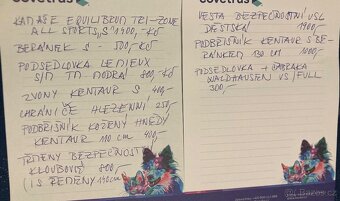 covetrus
KAMAŠE EQUILIBIUM TRI-ZONE
ALL SPORTS, S 1900,-Kč
BERÁNEK S - 500,-Kč
PODSEDLOVKA LEMIEUX
S/M TM MODRÁ 800,-Kč
ZVONY KENTAUR S 400,-
CHRÁNIČE HLEZENNÍ 250,-
PODBŘIŠNÍK KOŽENÝ HNĚDÝ
KENTAUR 110 cm 400,-
TŘMENY BEZPEČNOSTNÍ
KLOUBOVÉ 800,-
(I S ŘEMENY 140cm)
covetrus
VESTA BEZPEČNOSTNÍ USL
DĚTSKÁ 1900,-
PODBŘIŠNÍK KENTAUR S BE-
RÁNKEM 130 cm 1000,-
PODSEDLOVKA + ČABRAKA
WALDHAUSEN VS/FULL
300,-
Bazos.cz